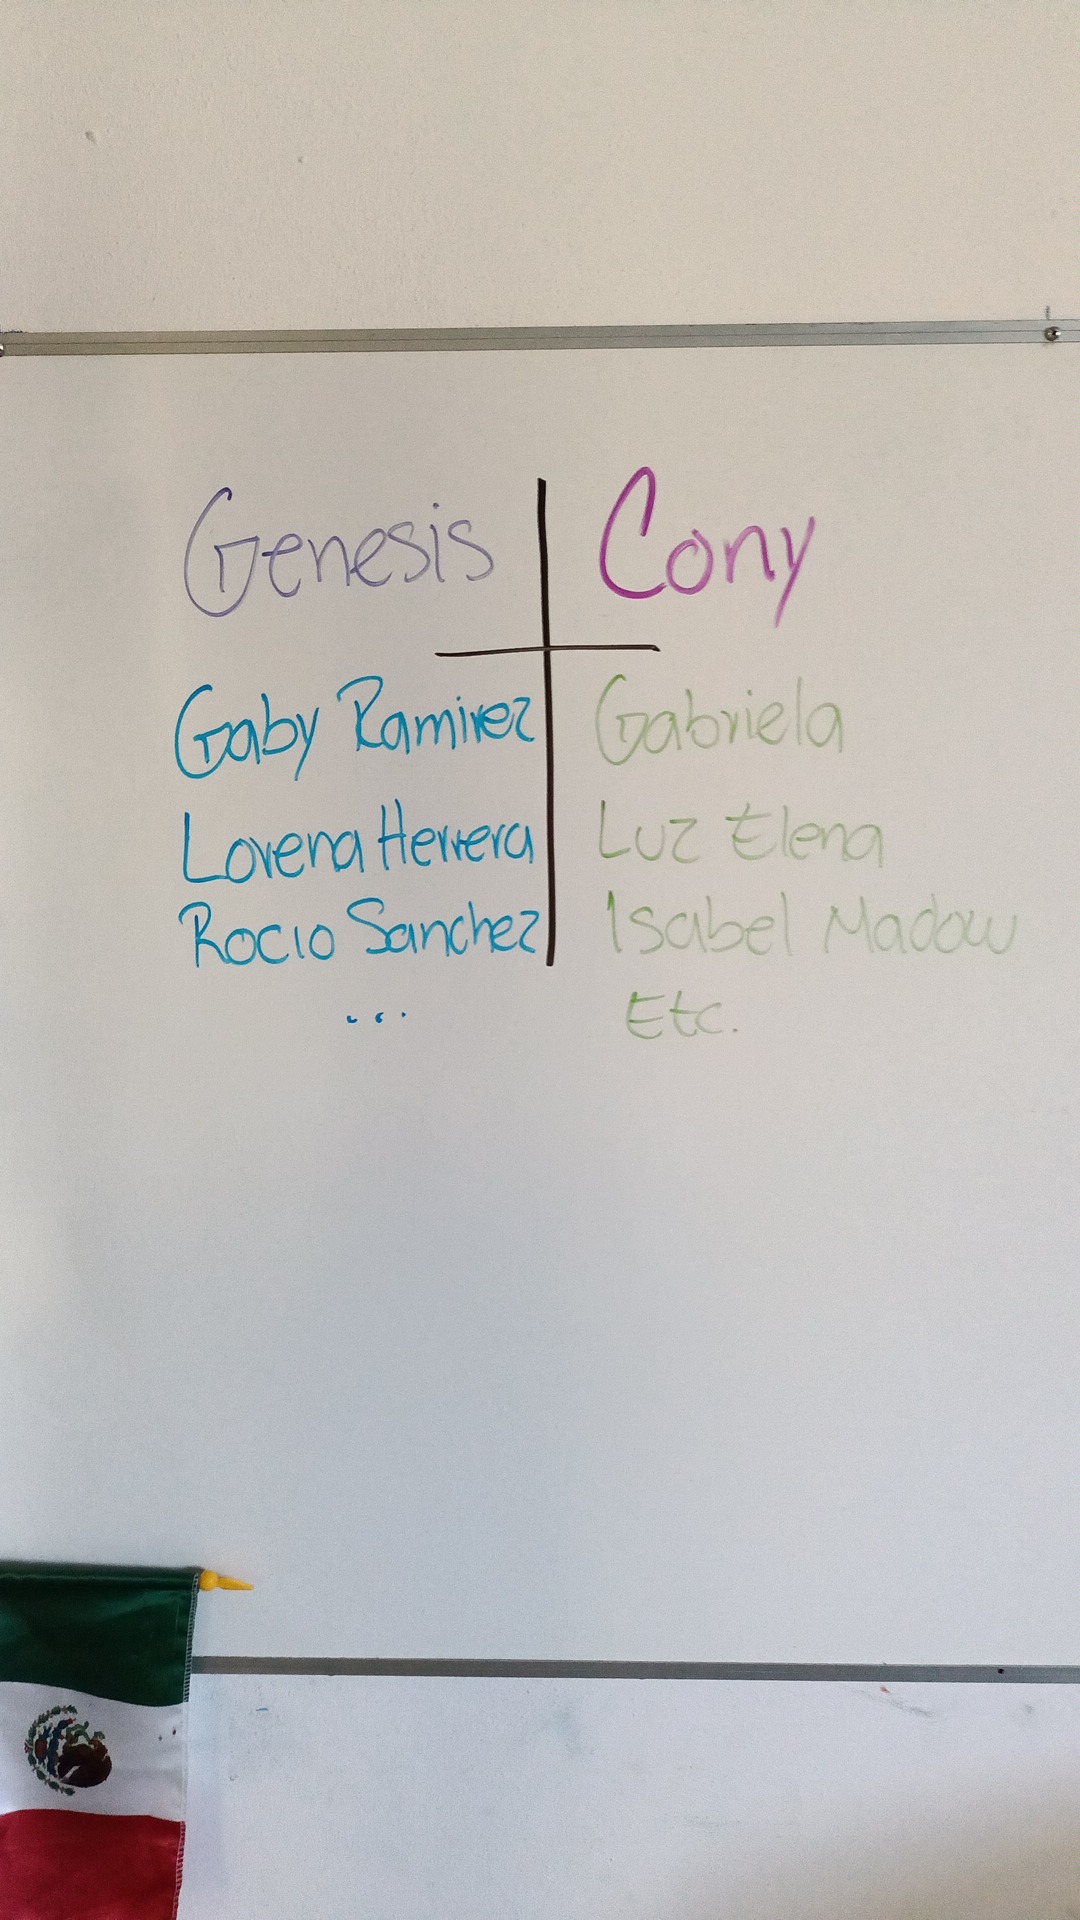 Genesis
Cony
Gaby Ramirez
Lorena Herrera
Rocio Sanchez
...
Gabriela
Luz Elena
Isabel Madow
Etc.